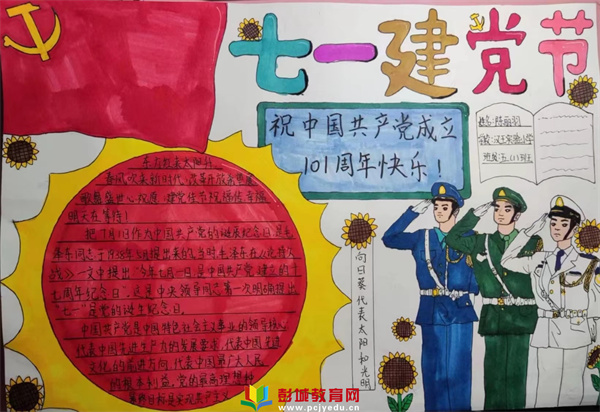 七一建党节
祝中国共产党成立
101周年快乐！
姓名:陈丽羽
学校:汉王实验小学
东方红来太阳升
春风吹来新时代，改革开放来思展
明天在等待！
把7月1日作为中国共产党的诞辰纪念日是毛
泽东同志于1938年5月提出来的。当时,毛泽东在《论持久
战》一文中提出"今年七月一日是中国共产党建立的十
七周年纪念日",这是中央领导同志第一次明确提出
"七一"是党的诞生纪念日。
中国共产党是中国特色社会主义事业的领导核心，
代表中国先进生产力的发展要求，代表中国先进
文化的前进方向，代表中国最广大人民
的根本利益。党的最高理想和
最终目标是实现共产主义
向日葵代表太阳和光明
彭城教育网
www.pcjyedu.cn